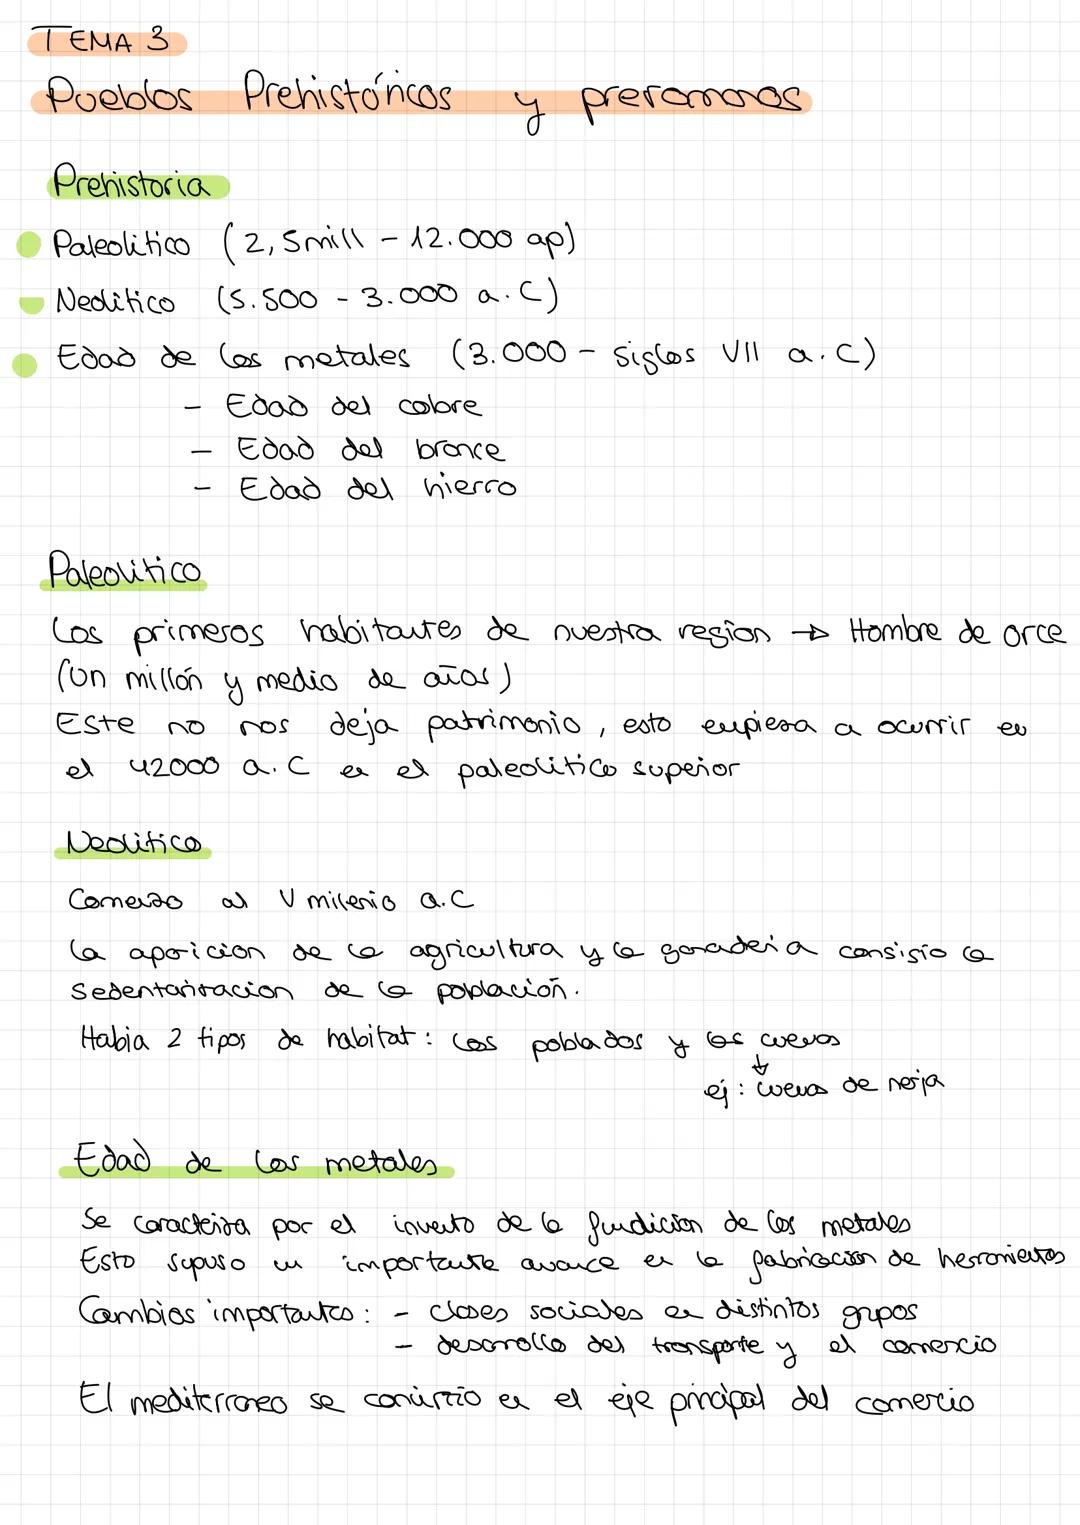 TEMA 3
Pueblos Prehistóricos y preromanos
Prehistoria
Paleolitico (2,5mill - 12.000 ap)
Neolitico (5.500 - 3.000 a.C)
Edad de los metales (3.000 - siglos VII a.C)
- Edad del cobre
- Edad del bronce
- Edad del hierro
Paleolitico
Los primeros habitantes de nuestra region → Hombre de orce
(Un millón y medio de años)
Este no nos deja patrimonio, esto empieza a ocurrir en
el 42000 a.C en el paleolitico superior
Neolitico
Comenzo al V milenio a.C
La aparicion de la agricultura y la ganaderia consigio la
sedentarizacion de la poblacion.
Habia 2 tipos de habitat: los poblados y las cuevas
↓
ej: cueva de nerja
Edad de los metales
Se caracteriza por el invento de la fundicion de los metales
Esto supuso un importante avance en la fabricacion de herramientas
Cambios importantes: - clases sociales en distintos grupos
- desarrollo del transporte y el comercio
El mediterraneo se convirtio en el eje principal del comercio